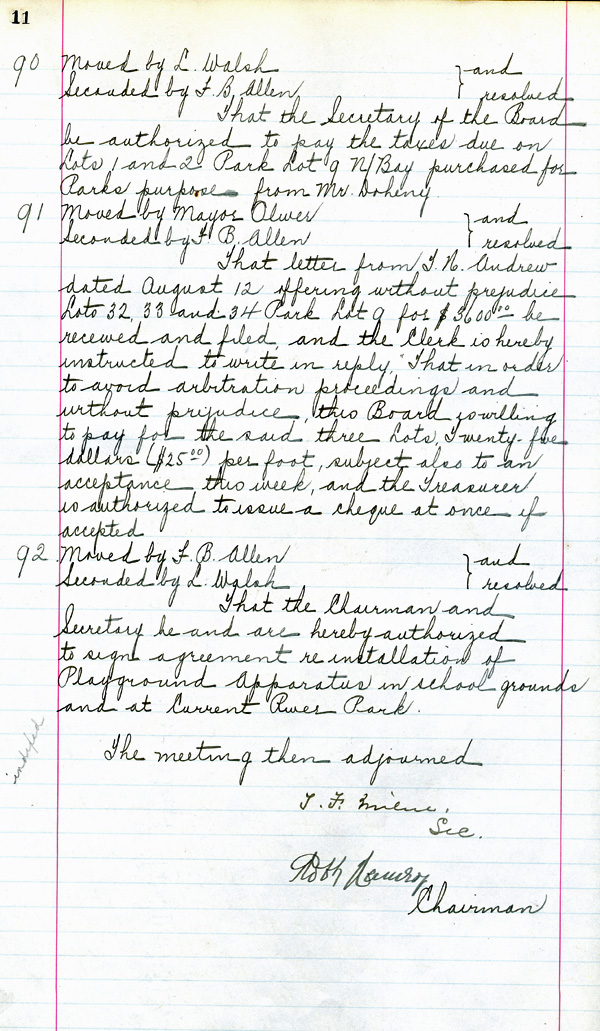 11
90 Moved by L. Walsh } and
Seconded by F. B. Allen } resolved
That the Secretary of the Board
be authorized to pay the taxes due on
Lots 1 and 2 Park Lot 9 N/Bay purchased for
Parks purpose from Mr. Doheny.
91 Moved by Mayor Oliver } and
Seconded by F. B. Allen } resolved
That letter from T. N. Andrew
dated August 12 offering without prejudice
Lots 32, 33 and 34 Park Lot 9 for $3600.00 be
received and filed, and the Clerk is hereby
instructed to write in reply, "That in order
to avoid arbitration proceedings and
without prejudice, this Board is willing
to pay for the said three Lots, Twenty-five
dollars ($25.00) per foot, subject also to an
acceptance this week, and the Treasurer
is authorized to issue a cheque at once if
accepted
92. Moved by F. B. Allen } and
Seconded by L. Walsh } resolved
That the Chairman and
Secretary be and are hereby authorized
to sign agreement re installation of
Playground Apparatus in school grounds
and at Current River Park.
indexed
The meeting then adjourned
T. F. Milne,
Sec.
Chairman